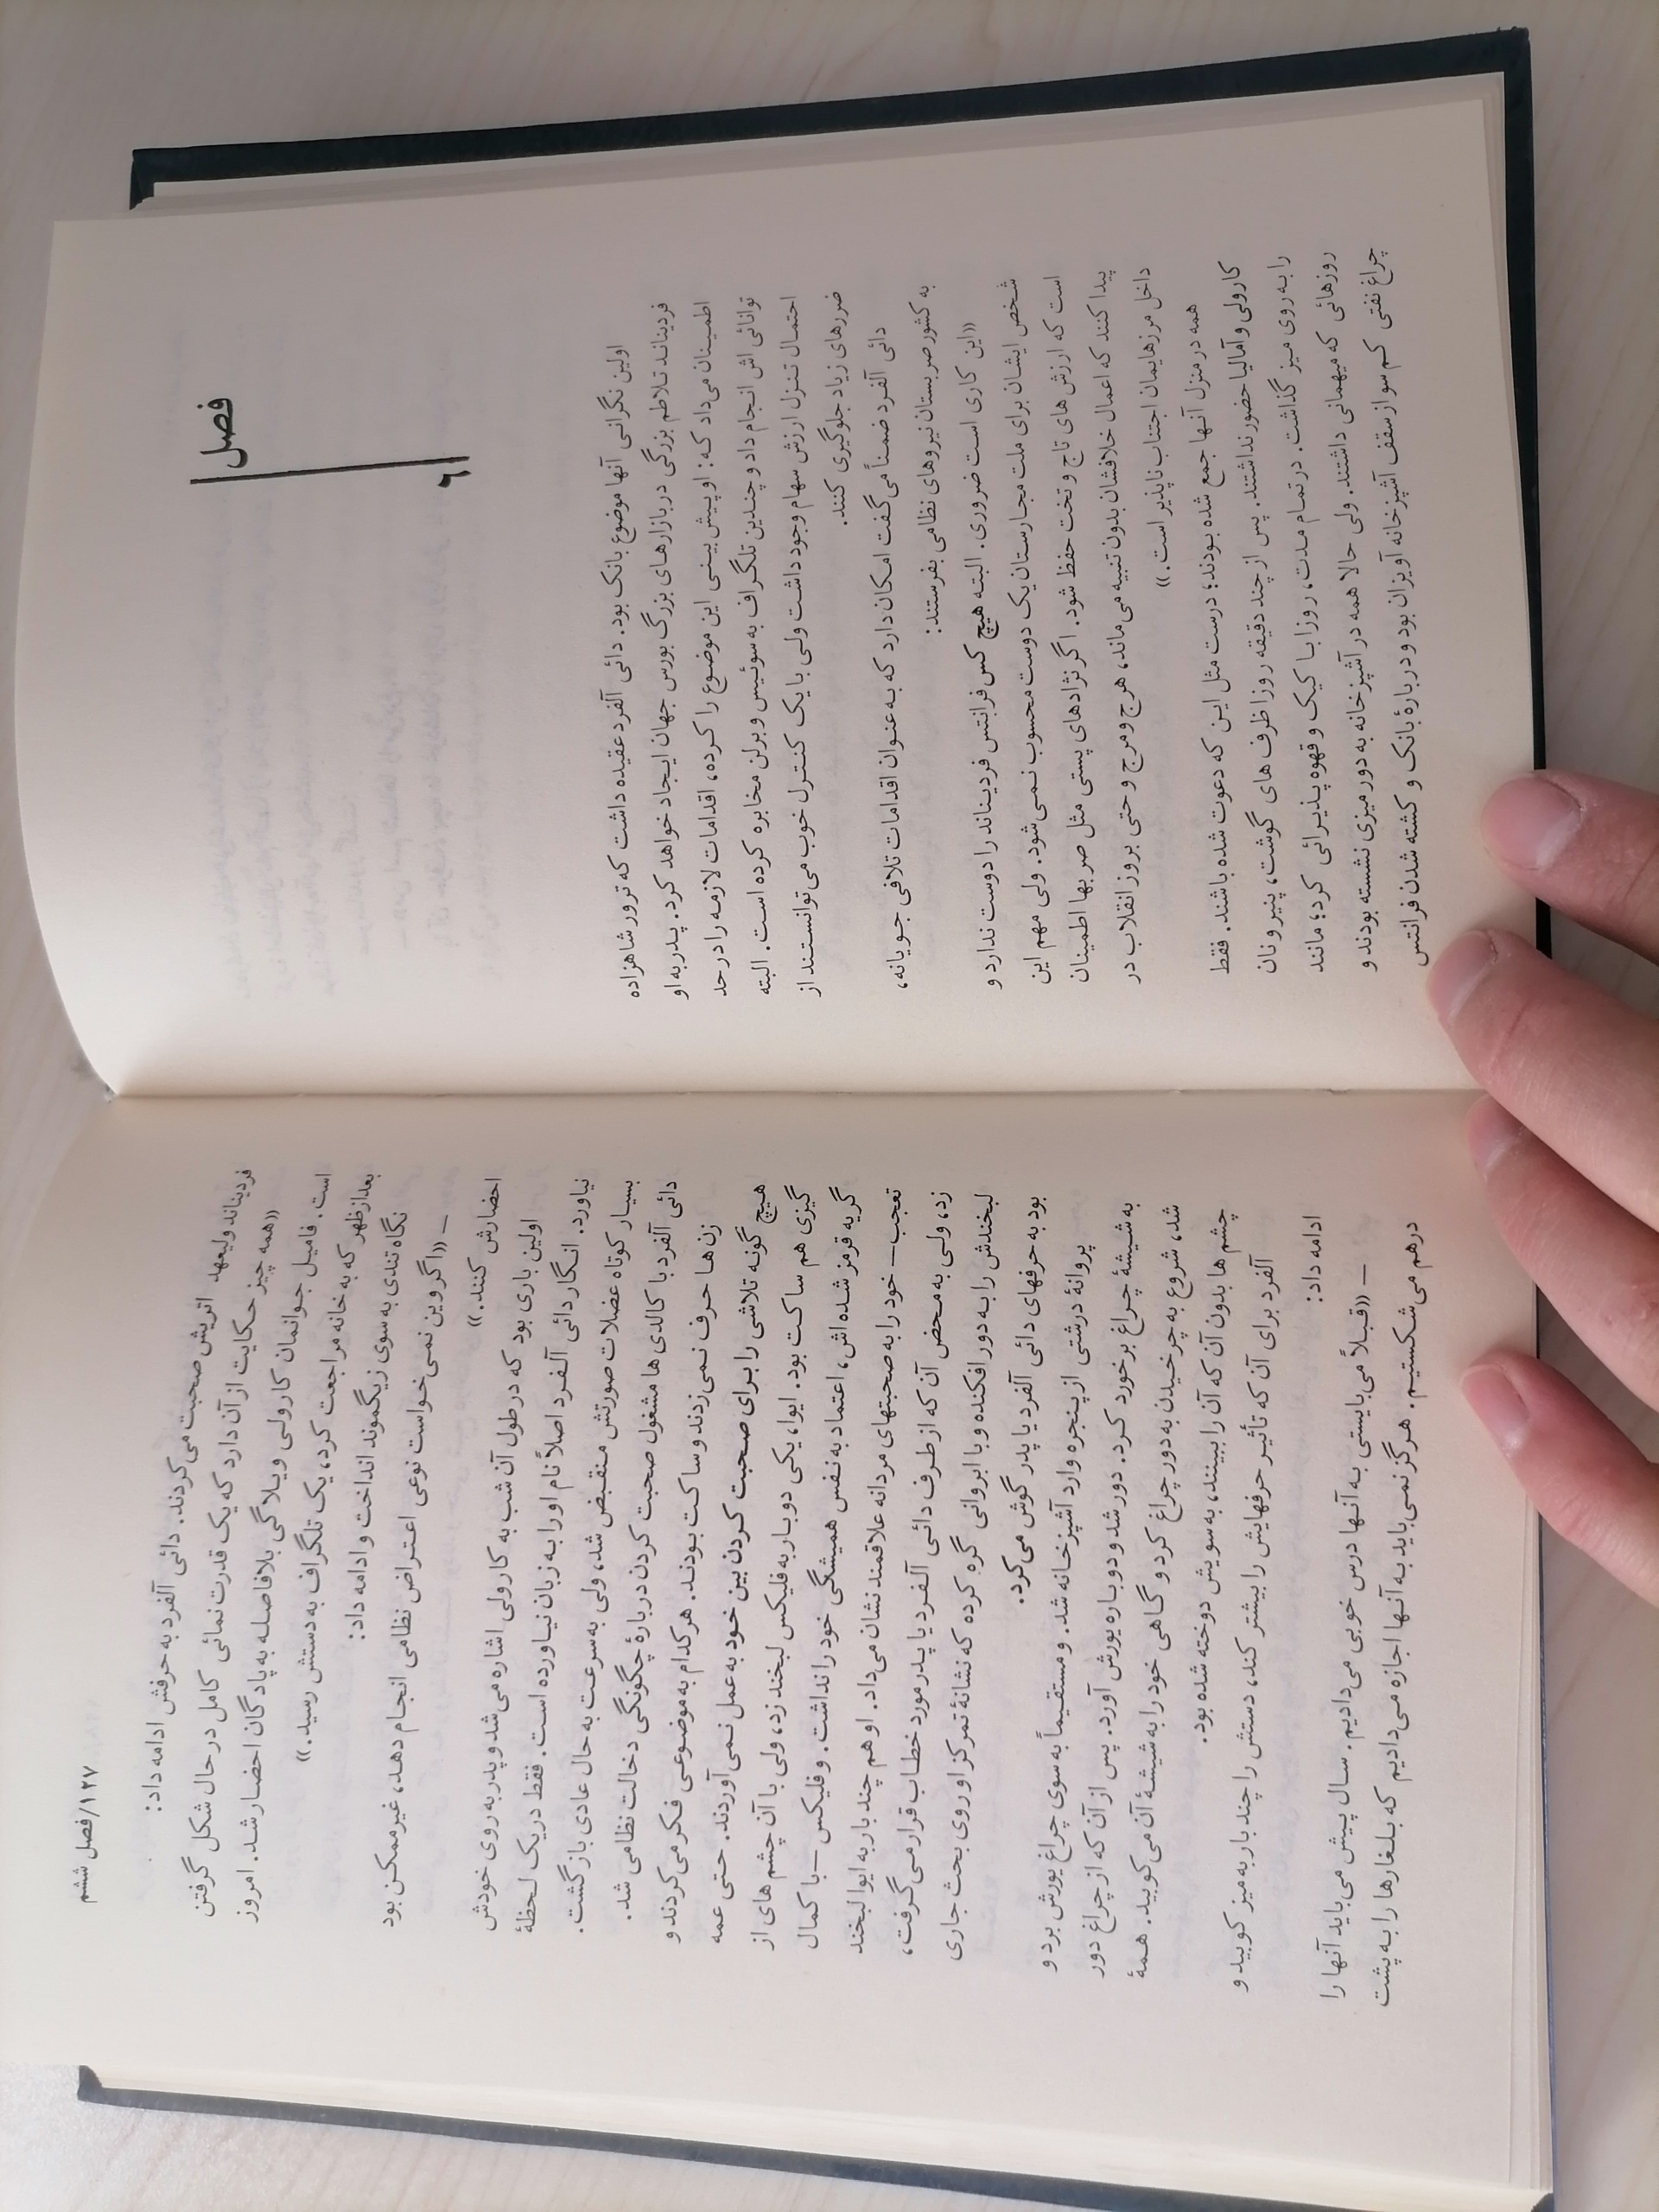 فصل
۶
اولین نگرانی آنها موضوع بانک بود. دائی آلفرد عقیده داشت که ترور شاهزاده
فردیناند تلاطم بزرگی در بازارهای بزرگ بورس جهان ایجاد خواهد کرد. پدر به او
اطمینان می‌داد که: او پیش بینی این موضوع را کرده، اقدامات لازمه را در حد
توانائی اش انجام داد و چندین تلگراف به سوئیس و برلن مخابره کرده است. البته
احتمال تنزل ارزش سهام وجود داشت ولی با یک کنترل خوب می‌توانستند از
ضررهای زیاد جلوگیری کنند.
دائی آلفرد ضمناً می‌گفت امکان دارد که به عنوان اقدامات تلافی جویانه،
به کشور صربستان نیروهای نظامی بفرستند:
«این کاری است ضروری. البته هیچ کس فرانتس فردیناند را دوست ندارد و
شخص ایشان برای ملت مجارستان یک دوست محسوب نمی‌شود. ولی مهم این
است که ارزش های تاج و تخت حفظ شود. اگر نژادهای پستی مثل صربها اطمینان
پیدا کنند که اعمال خلافشان بدون تنبیه می‌ماند، هرج و مرج و حتی بروز انقلاب در
داخل مرزهایمان اجتناب ناپذیر است.»
همه در منزل آنها جمع شده بودند؛ درست مثل این که دعوت شده باشند. فقط
کارولی و آمالیا حضور نداشتند. پس از چند دقیقه روزا ظرف های گوشت، پنیر و نان
را به روی میز گذاشت. در تمام مدت، روزا با کیک و قهوه پذیرائی کرد؛ مانند
روزهائی که میهمانی داشتند. ولی حالا همه در آشپزخانه به دور میزی نشسته بودند و
چراغ نفتی کم سو از سقف آشپزخانه آویزان بود و دربارهٔ بانک و کشته شدن فرانتس
۱۲۷/فصل ششم
فردیناند ولیعهد اتریش صحبت می‌کردند. دائی آلفرد به حرفش ادامه داد:
«همه چیز حکایت از آن دارد که یک قدرت نمائی کامل در حال شکل گرفتن
است. فامیل جوانمان کارولی ویلاگی بلافاصله به پادگان احضار شد. امروز
بعدازظهر که به خانه مراجعت کرد، یک تلگراف به دستش رسید.»
نگاه تندی به سوی زیگموند انداخت و ادامه داد:
— «اگر وین نمی‌خواست نوعی اعتراض نظامی انجام دهد، غیرممکن بود
احضارش کنند.»
اولین باری بود که در طول آن شب به کارولی اشاره می‌شد و پدر به روی خودش
نیاورد. انگار دائی آلفرد اصلاً نام او را به زبان نیاورده است. فقط در یک لحظهٔ
بسیار کوتاه عضلات صورتش منقبض شد، ولی به سرعت به حال عادی بازگشت.
دائی آلفرد با کالدی ها مشغول صحبت کردن دربارهٔ چگونگی دخالت نظامی شد.
زن‌ها حرف نمی‌زدند و ساکت بودند. هرکدام به موضوعی فکر می‌کردند و
هیچ گونه تلاشی را برای صحبت کردن بین خود به عمل نمی‌آوردند. حتی عمه
گیزی هم ساکت بود. ایوا، یکی دو بار به فلیکس لبخند زد، ولی با آن چشم های از
گریه قرمز شده اش، اعتماد به نفس همیشگی خود را نداشت. و فلیکس —با کمال
تعجب— خود را به صحبتهای مردانه علاقمند نشان می‌داد. او هم چند بار به ایوا لبخند
زد، ولی به محض آن که از طرف دائی آلفرد یا پدر مورد خطاب قرار می‌گرفت،
لبخندش را به دور افکنده و با ابروانی گره کرده که نشانهٔ تمرکز او روی بحث جاری
بود به حرفهای دائی آلفرد یا پدر گوش می‌کرد.
پروانهٔ درشتی از پنجره وارد آشپزخانه شد. و مستقیماً به سوی چراغ یورش برد و
به شیشهٔ چراغ برخورد کرد. دور شد و دوباره یورش آورد. پس از آن که از چراغ دور
شد، شروع به چرخیدن به دور چراغ کرد و گاهی خود را به شیشهٔ آن می‌کوبید. همهٔ
چشم ها بدون آن که آن را ببینند، به سویش دوخته شده بود.
آلفرد برای آن که تأثیر حرفهایش را بیشتر کند، دستش را چند بار به میز کوبید و
ادامه داد:
— «قبلاً می‌بایستی به آنها درس خوبی می‌دادیم. سال پیش می‌باید آنها را
درهم می‌شکستیم. هرگز نمی‌باید به آنها اجازه می‌دادیم که بلغارها را به پشت